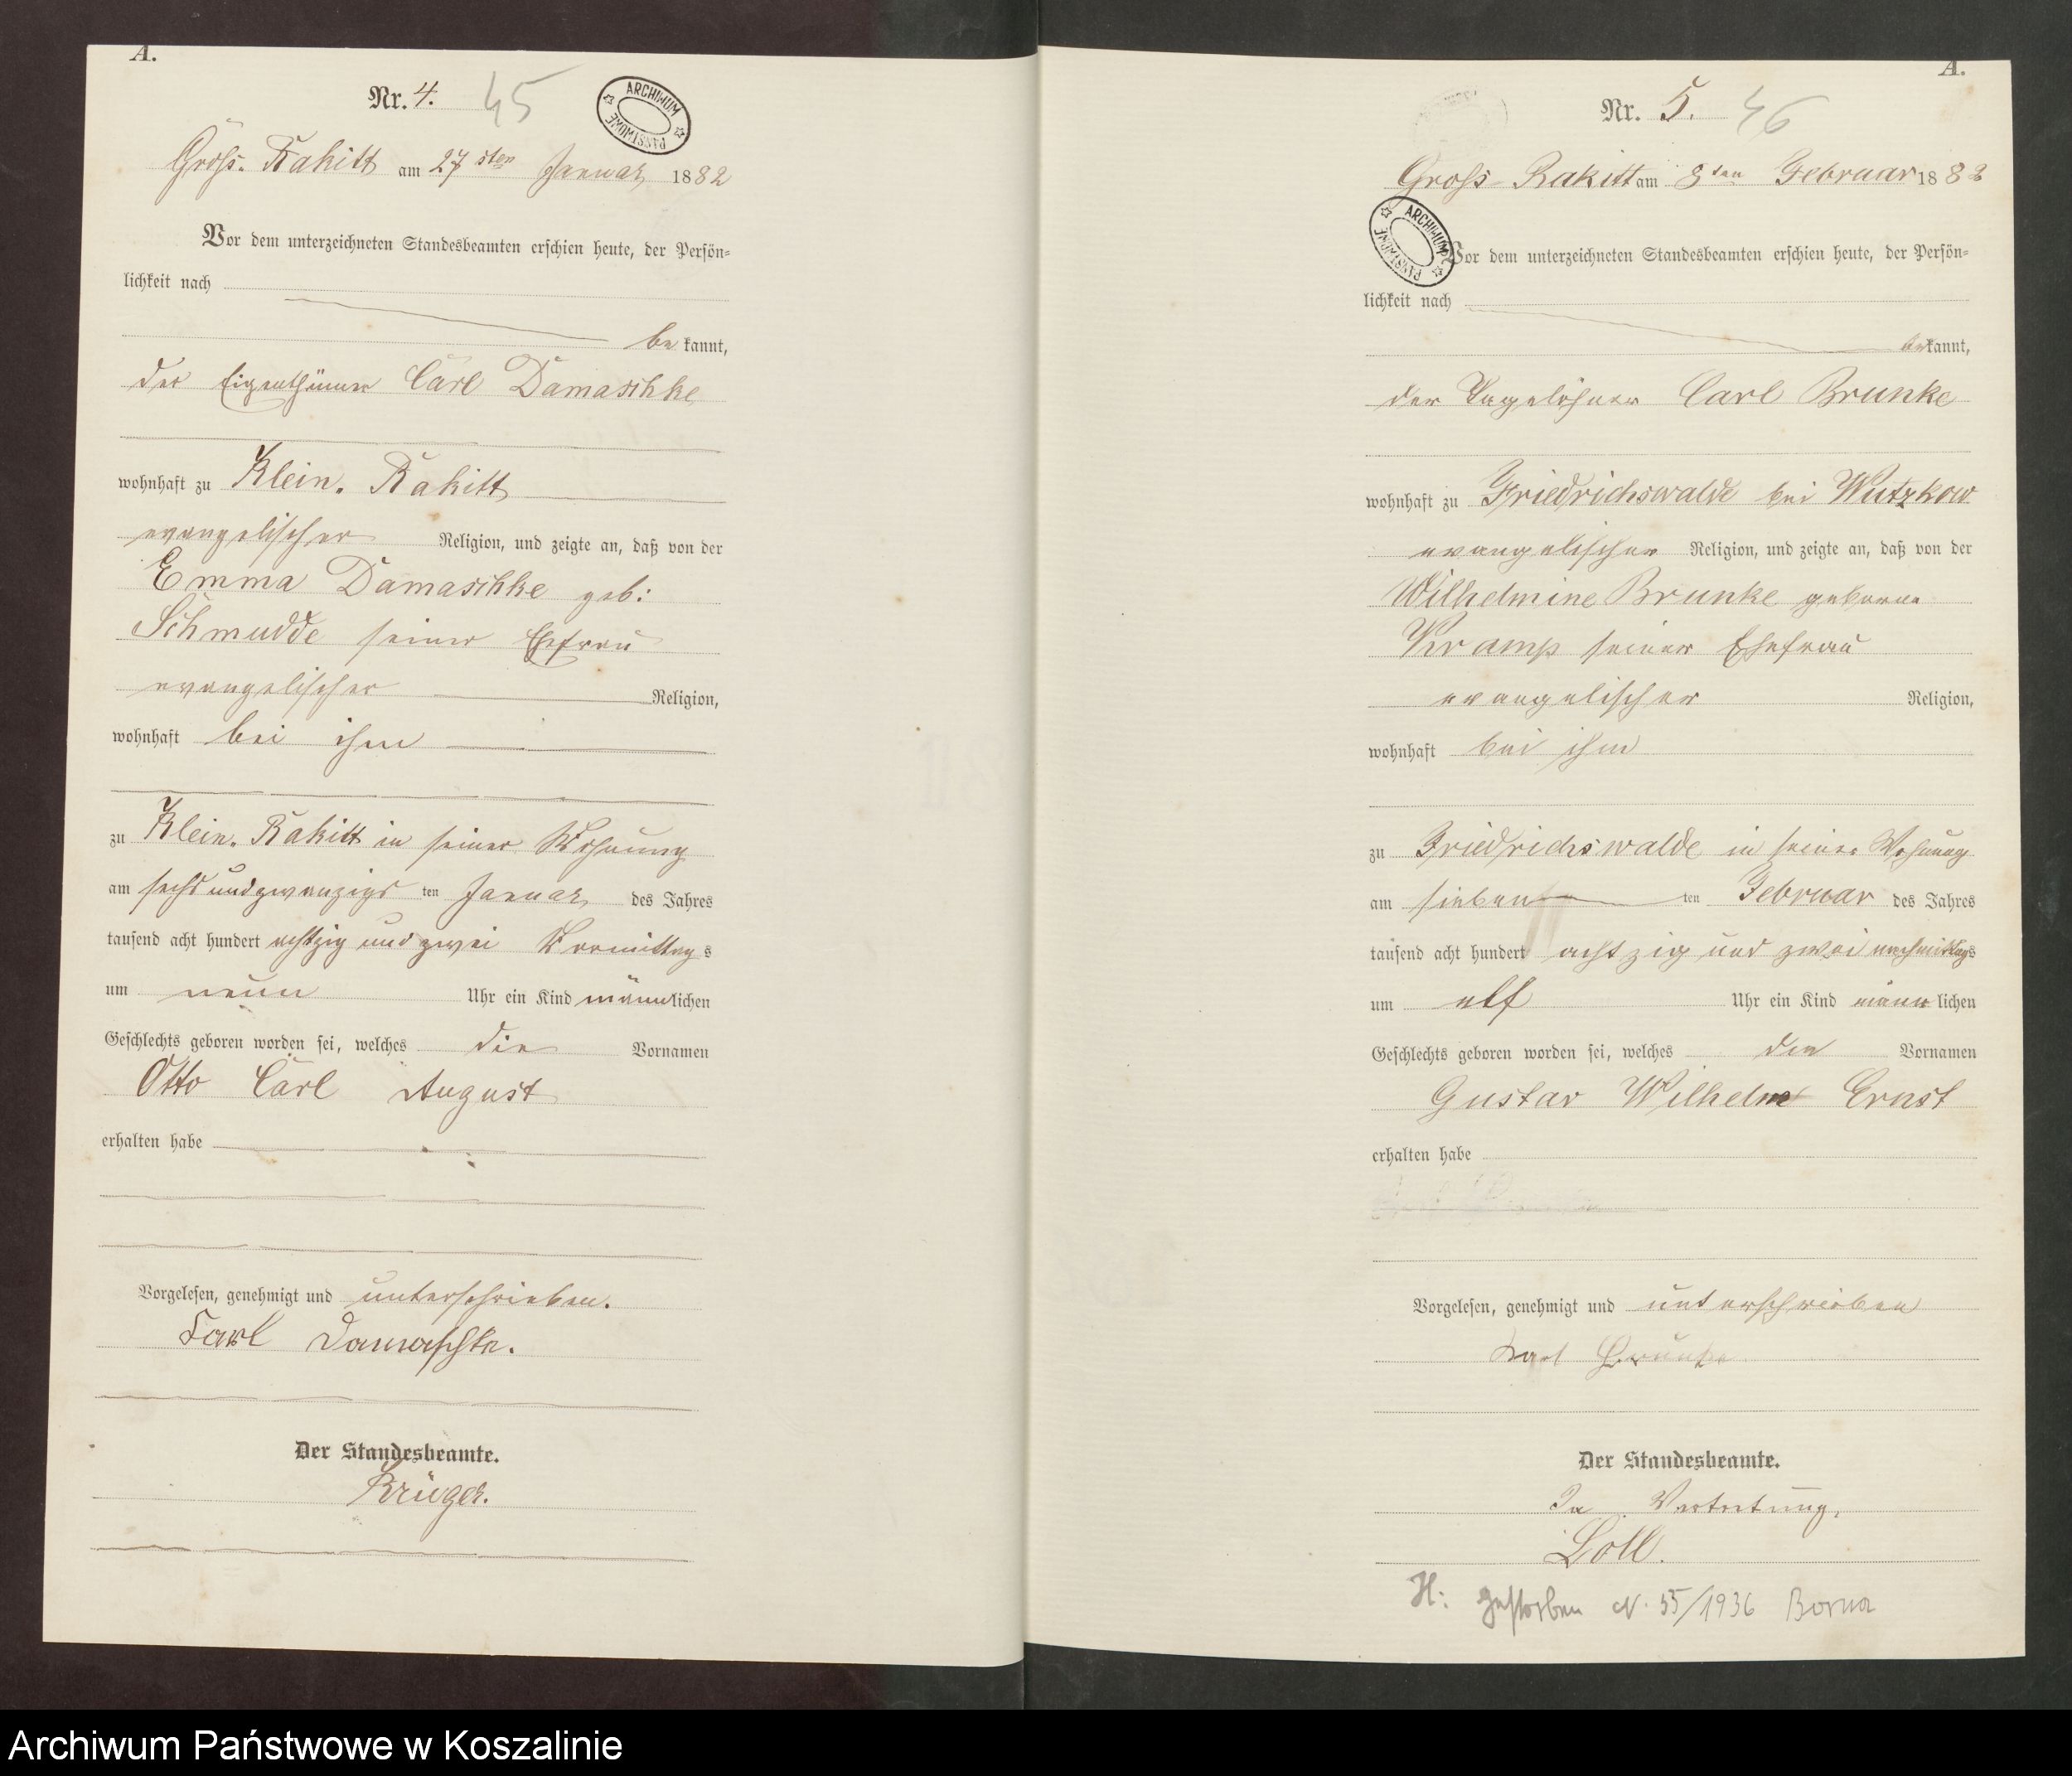 A.
Nr. 4. 45
ARCHIWUM PAŃSTWOWE
Gross. Rakitt am 27 sten Januar 1882
Vor dem unterzeichneten Standesbeamten erschien heute, der Persön-
lichkeit nach
be kannt,
der Eigenthümer Carl Damaschke
wohnhaft zu Klein. Rakitt
evangelischer Religion, und zeigte an, daß von der
Emma Damaschke geb:
Schmudde seiner Ehefrau
evangelischer Religion,
wohnhaft bei ihm
zu Klein. Rakitt in seiner Wohnung
am sechsundzwanzigs ten Januar des Jahres
tausend acht hundert achtzig und zwei Vormittag s
um neun Uhr ein Kind männlichen
Geschlechts geboren worden sei, welches die Vornamen
Otto Carl August
erhalten habe
Vorgelesen, genehmigt und unterschrieben.
Carl Damaschke.
Der Standesbeamte.
Krüger.
A.
Nr. 5. 46
Gross-Rakitt am 8ten Februar 1882
ARCHIWUM PAŃSTWOWE
Vor dem unterzeichneten Standesbeamten erschien heute, der Persön-
lichkeit nach
bekannt,
der Tagelöhner Carl Brunke
wohnhaft zu Friedrichswalde bei Wutzkow
evangelischer Religion, und zeigte an, daß von der
Wilhelmine Brunke geborne
Kramp seiner Ehefrau
evangelischer Religion,
wohnhaft bei ihm
zu Friedrichswalde in seiner Wohnung
am sieben ten Februar des Jahres
tausend acht hundert achtzig und zwei nachmittags
um elf Uhr ein Kind männ lichen
Geschlechts geboren worden sei, welches den Vornamen
Gustav Wilhelm Ernst
erhalten habe
Vorgelesen, genehmigt und unterschrieben
Karl Brunke
Der Standesbeamte.
In Vertretung,
Loll.
H: gestorben N. 55/1936 Borna
Archiwum Państwowe w Koszalinie